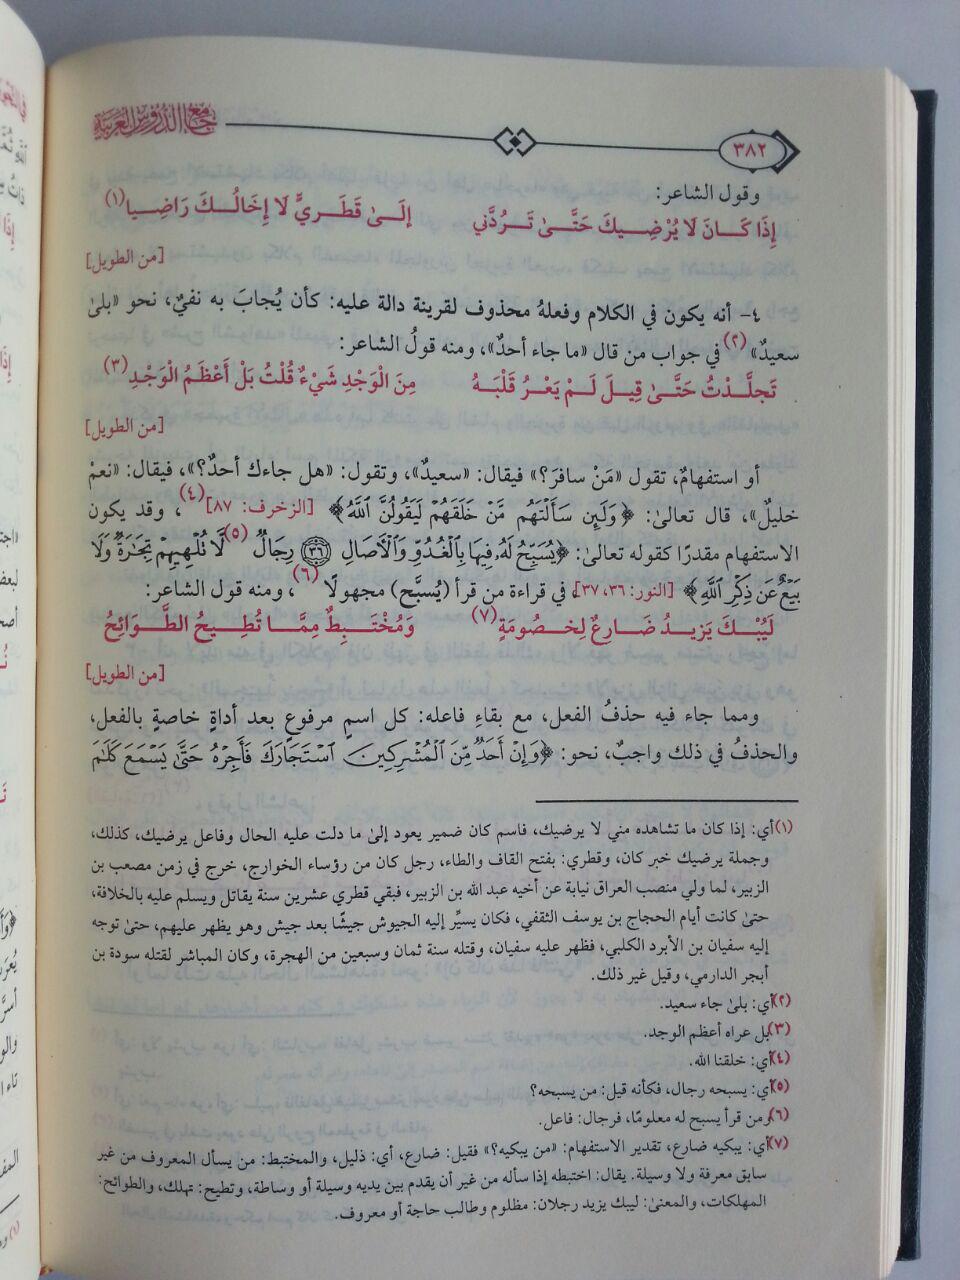 جامع الدروس العربية
٣٨٢
وقول الشاعر:
إِذَا كَـانَ لَا يُرْضِيكَ حَتَّىٰ تَـرُدَّني إِلَـىٰ قَطَـرِيٍّ لَا إِخَالُـكَ رَاضِـيا(١)
[من الطويل]
٤- أنه يكون في الكلام وفعلهُ محذوف لقرينة دالة عليه: كأن يُجابَ به نفيٌ، نحو «بلىٰ
سعيدٌ»(٢) في جواب من قال «ما جاء أحدٌ»، ومنه قولُ الشاعر:
تَجلَّـدْتُ حَتَّىٰ قِيـلَ لَـمْ يَعْـرُ قَلْبَـهُ مِنَ الْوَجْدِ شَيْءٌ قُلْتُ بَلْ أَعْظَمُ الْوَجْدِ(٣)
[من الطويل]
أو استفهامٌ، تقول «مَنْ سافرَ؟» فيقال: «سعيدٌ»، وتقول: «هل جاءك أحدٌ؟»، فيقال: «نعمْ
خليلٌ»، قال تعالىٰ: ﴿وَلَئِن سَأَلْتَهُم مَّنْ خَلَقَهُمْ لَيَقُولُنَّ ٱللَّهُ﴾ [الزخرف: ٨٧](٤)، وقد يكون
الاستفهام مقدرًا كقوله تعالىٰ: ﴿يُسَبِّحُ لَهُۥ فِيهَا بِٱلْغُدُوِّ وَٱلْأَصَالِ ۝٣٦ رِجَالٌ(٥) لَّا تُلْهِيهِمْ تِجَٰرَةٌ وَلَا
بَيْعٌ عَن ذِكْرِ ٱللَّهِ﴾ [النور: ٣٦، ٣٧]، في قراءة من قرأ (يُسبَّح) مجهولًا(٦)، ومنه قول الشاعر:
لَيُبْـكَ يَزِيـدُ ضَـارِعٌ لِـخصُومَةٍ(٧) وَمُخْتَبِـطٌ مِمَّـا تُطِيـحُ الطَّـوَائِحُ
[من الطويل]
ومما جاء فيه حذفُ الفعل، مع بقاءِ فاعله: كل اسمٍ مرفوعٍ بعد أداةٍ خاصةٍ بالفعل،
والحذفُ في ذلك واجبٌ، نحو: ﴿وَإِنْ أَحَدٌ مِّنَ ٱلْمُشْرِكِينَ ٱسْتَجَارَكَ فَأَجِرْهُ حَتَّىٰ يَسْمَعَ كَلَٰمَ
(١) أي: إذا كان ما تشاهده مني لا يرضيك، فاسم كان ضمير يعود إلىٰ ما دلت عليه الحال وفاعل يرضيك، كذلك،
وجملة يرضيك خبر كان، وقطري: بفتح القاف والطاء، رجل كان من رؤساء الخوارج، خرج في زمن مصعب بن
الزبير، لما ولي منصب العراق نيابة عن أخيه عبد الله بن الزبير، فبقي قطري عشرين سنة يقاتل ويسلم عليه بالخلافة،
حتىٰ كانت أيام الحجاج بن يوسف الثقفي، فكان يسيِّر إليه الجيوش جيشًا بعد جيش وهو يظهر عليهم، حتىٰ توجه
إليه سفيان بن الأبرد الكلبي، فظهر عليه سفيان، وقتله سنة ثمان وسبعين من الهجرة، وكان المباشر لقتله سودة بن
أبجر الدارمي، وقيل غير ذلك.
(٢) أي: بلىٰ جاء سعيد.
(٣) بل عراه أعظم الوجد.
(٤) أي: خلقنا الله.
(٥) أي: يسبحه رجال، فكأنه قيل: من يسبحه؟
(٦) ومن قرأ يسبح له معلومًا، فرجال: فاعل.
(٧) أي: يبكيه ضارع، تقدير الاستفهام: «من يبكيه؟» فقيل: ضارع، أي: ذليل، والمختبط: من يسأل المعروف من غير
سابق معرفة ولا وسيلة. يقال: اختبطه إذا سأله من غير أن يقدم بين يديه وسيلة أو وساطة، وتطيح: تهلك، والطوائح:
المهلكات، والمعنىٰ: ليبك يزيد رجلان: مظلوم وطالب حاجة أو معروف.